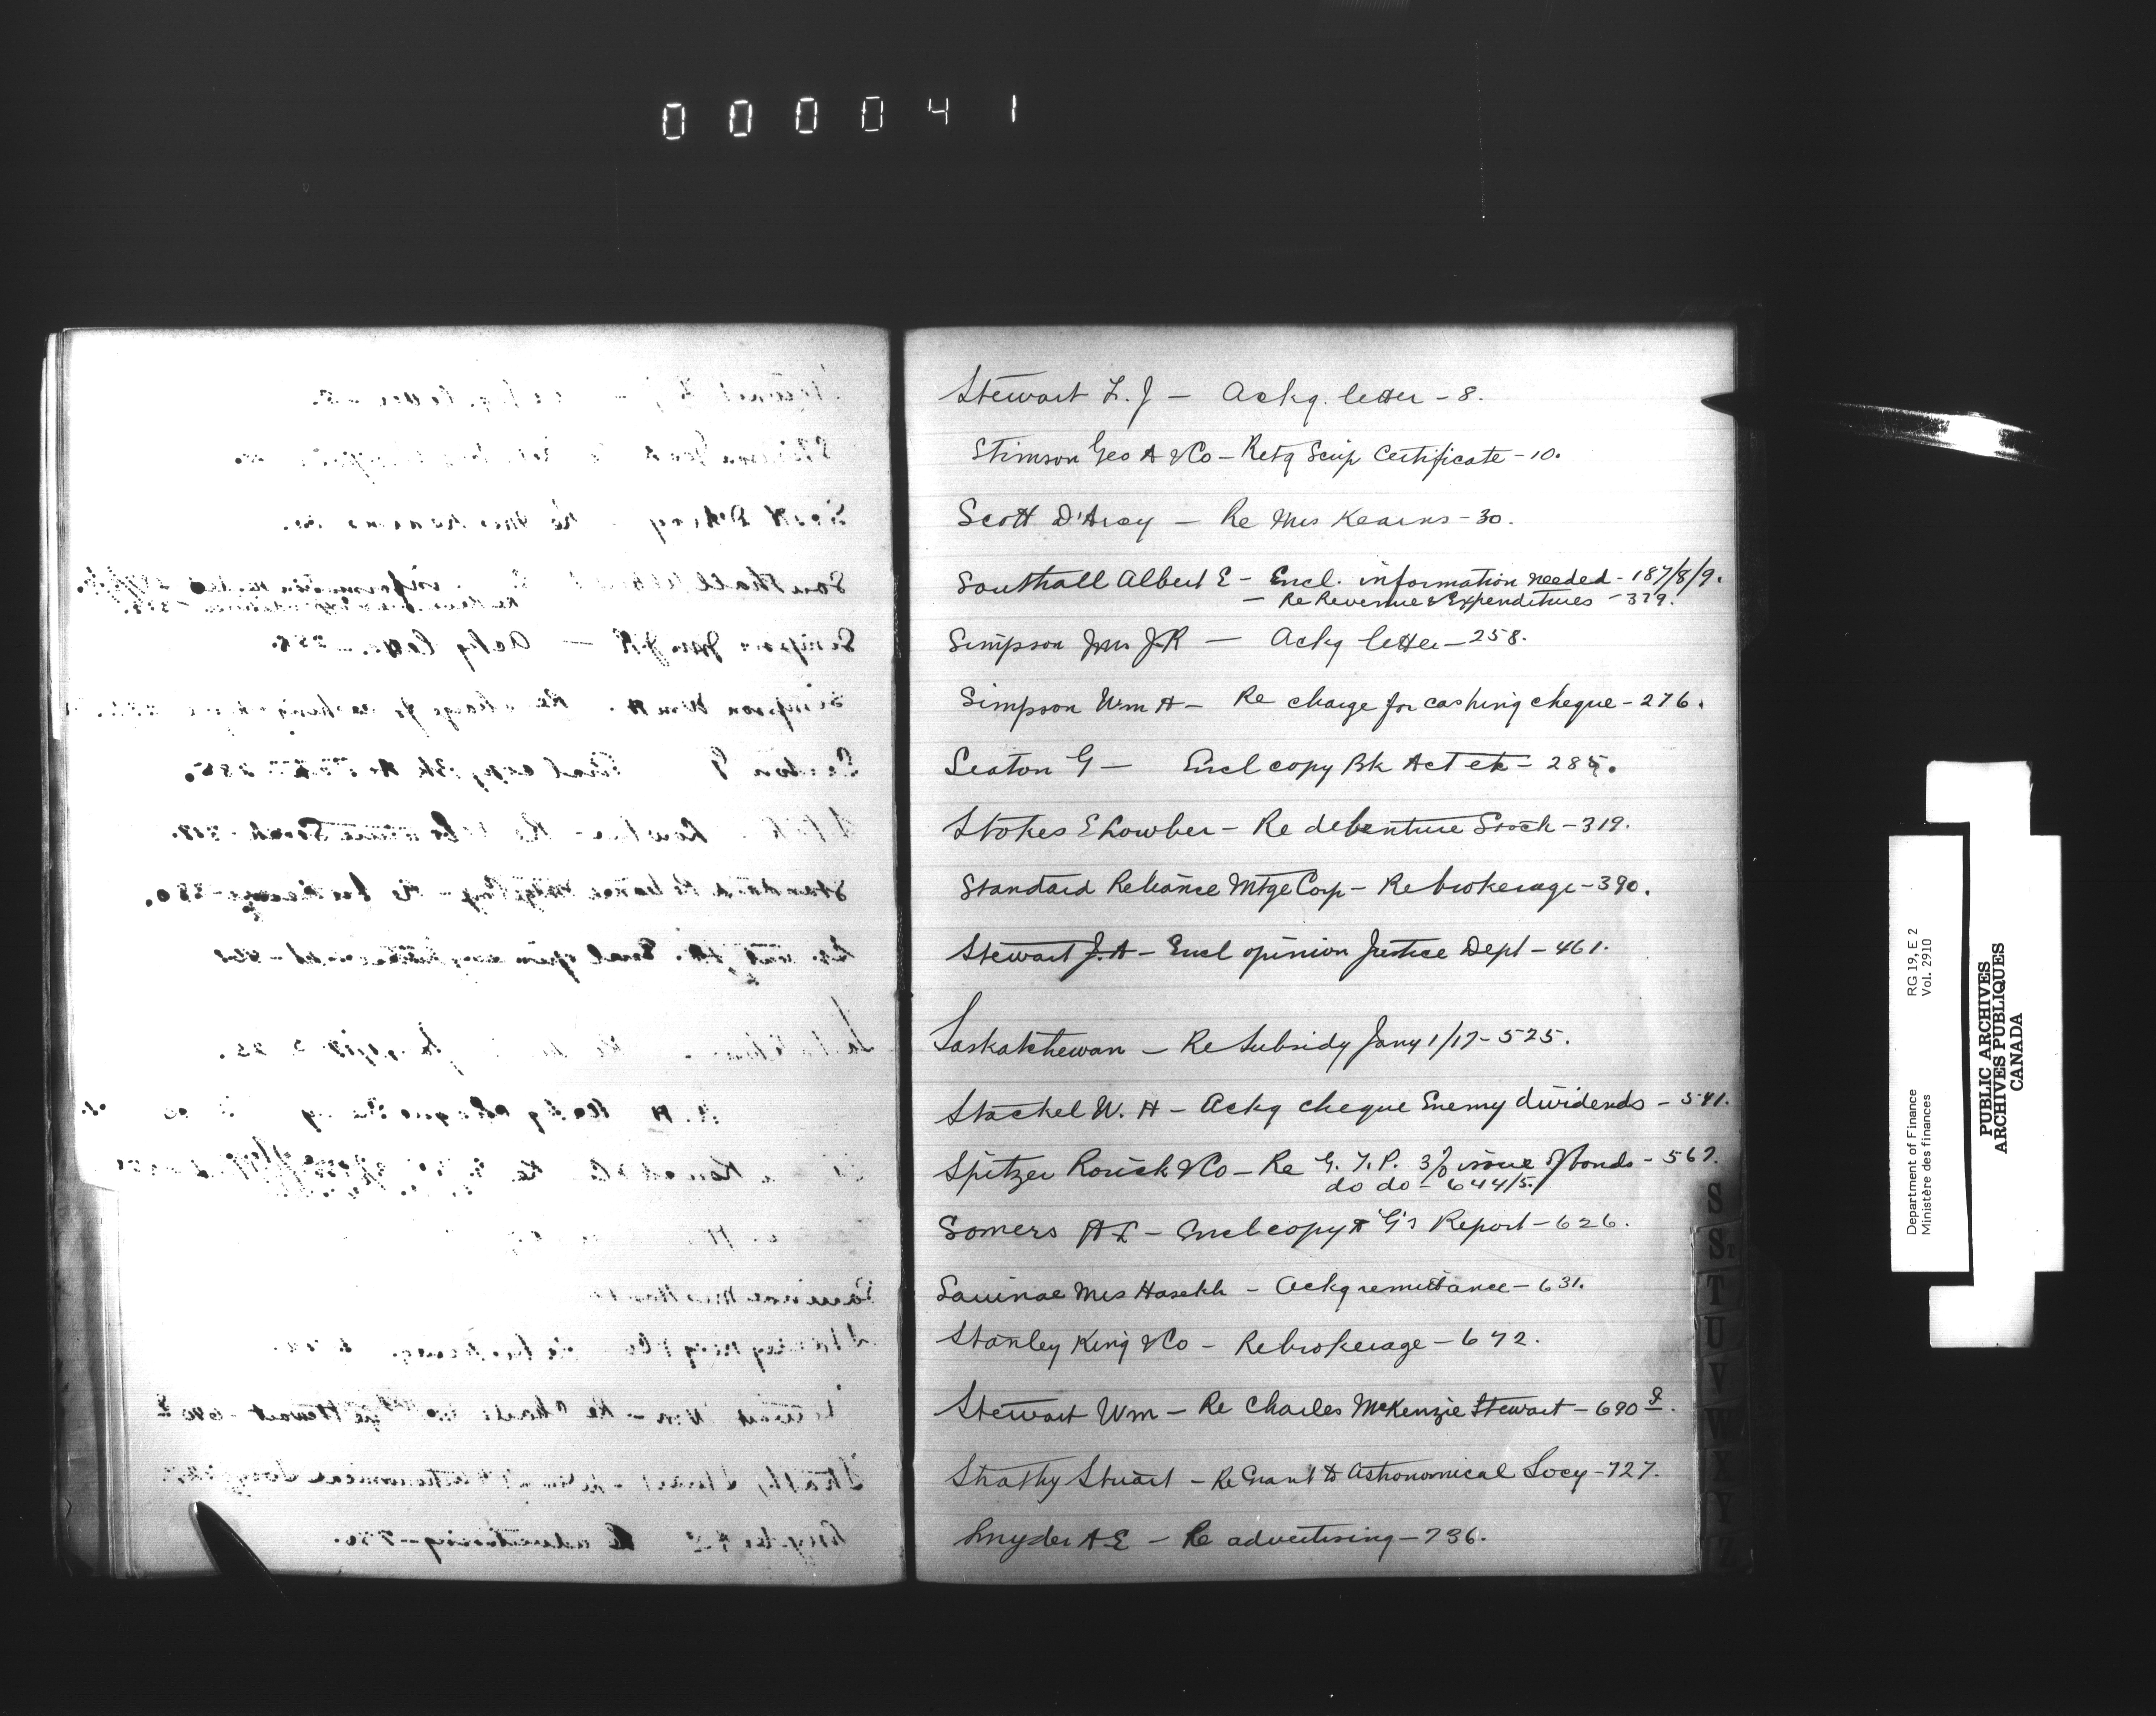 000041
Stewart L. J — Ackg. letter - 8.
Stimson Geo A & Co - Retg Scrip Certificate - 10.
Scott D'Arcy — Re Mrs Kearns - 30.
Southall Albert E - Encl. information needed - 187/8/9.
- Re Revenue & Expenditures - 379.
Simpson Mrs J.R — Ackg letter - 258.
Simpson Wm H - Re charge for cashing cheque - 276.
Seaton G — Encl copy Bk Act etc - 285.
Stokes E Lowber - Re debenture Stock - 319.
Standard Reliance Mtge Corp - Re brokerage - 390.
Stewart J. A - Encl opinion Justice Dept - 461.
Saskatchewan - Re Subsidy Jany 1/17 - 525.
Stackel W. H - Ackg cheque Enemy dividends - 541.
Spitzer Rorick & Co - Re G. T. P. 3% issue of bonds - 567.
do do - 644/5.
Somers H L - Encl copy A G's Report - 626.
Mrs - Ackg remittance - 631.
Stanley King & Co - Re brokerage - 672.
Stewart Wm - Re Charles McKenzie Stewart - 690
Strathy Stuart - Re Grant to Astronomical Socy - 727.
Snyder A E - Re advertising - 736.
S
St
T
U
V
W
X
Y
Z
Department of Finance RG 19, E 2
Ministère des finances Vol. 2910
PUBLIC ARCHIVES
ARCHIVES PUBLIQUES
CANADA